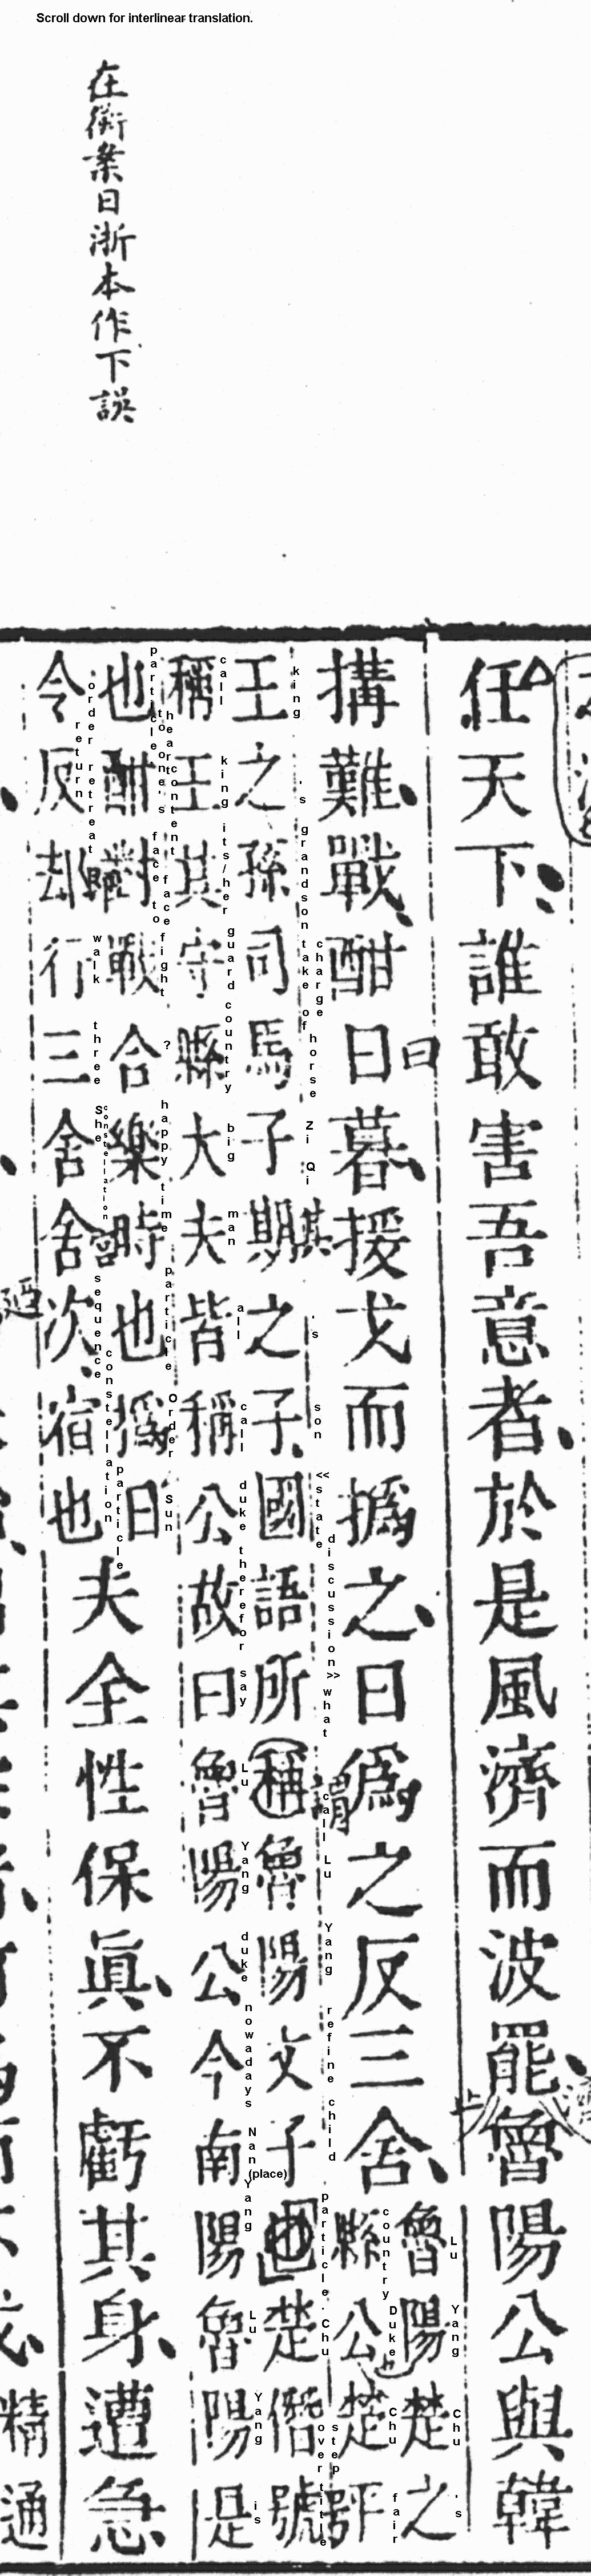 Scroll down for interlinear translation.
在衡案日浙本作下誤
任天下誰敢害吾意者於是風濟而波罷魯陽公與韓
搆難戰酣日暮援戈而撝之日爲之反三舍
曰
魯陽楚之
Lu Yang Chu 's
縣公楚評
country Duke Chu fair
王之孫司馬子期之子國語所稱魯陽文子也楚僭號
其
謂
king 's grandson take charge of horse Zi Qi 's son <<state discussion>> what call Lu Yang refine child particle. Chu overstep title
稱王其守縣大夫皆稱公故曰魯陽公今南陽魯陽是
call king its/her guard country big man all call duke therefor say Lu Yang duke nowadays Nan (place) Yang Lu Yang is
也酣對戰合樂時也撝日
particle to one's heart content face to face fight ? happy time particle Order Sun
令反却行三舍舍次宿也
order return retreat walk three She constellation sequence constellation particle
夫全性保眞不虧其身遭急
精通